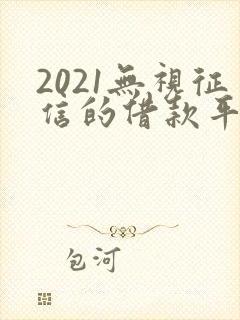 2021無視征
信的借款平
包河